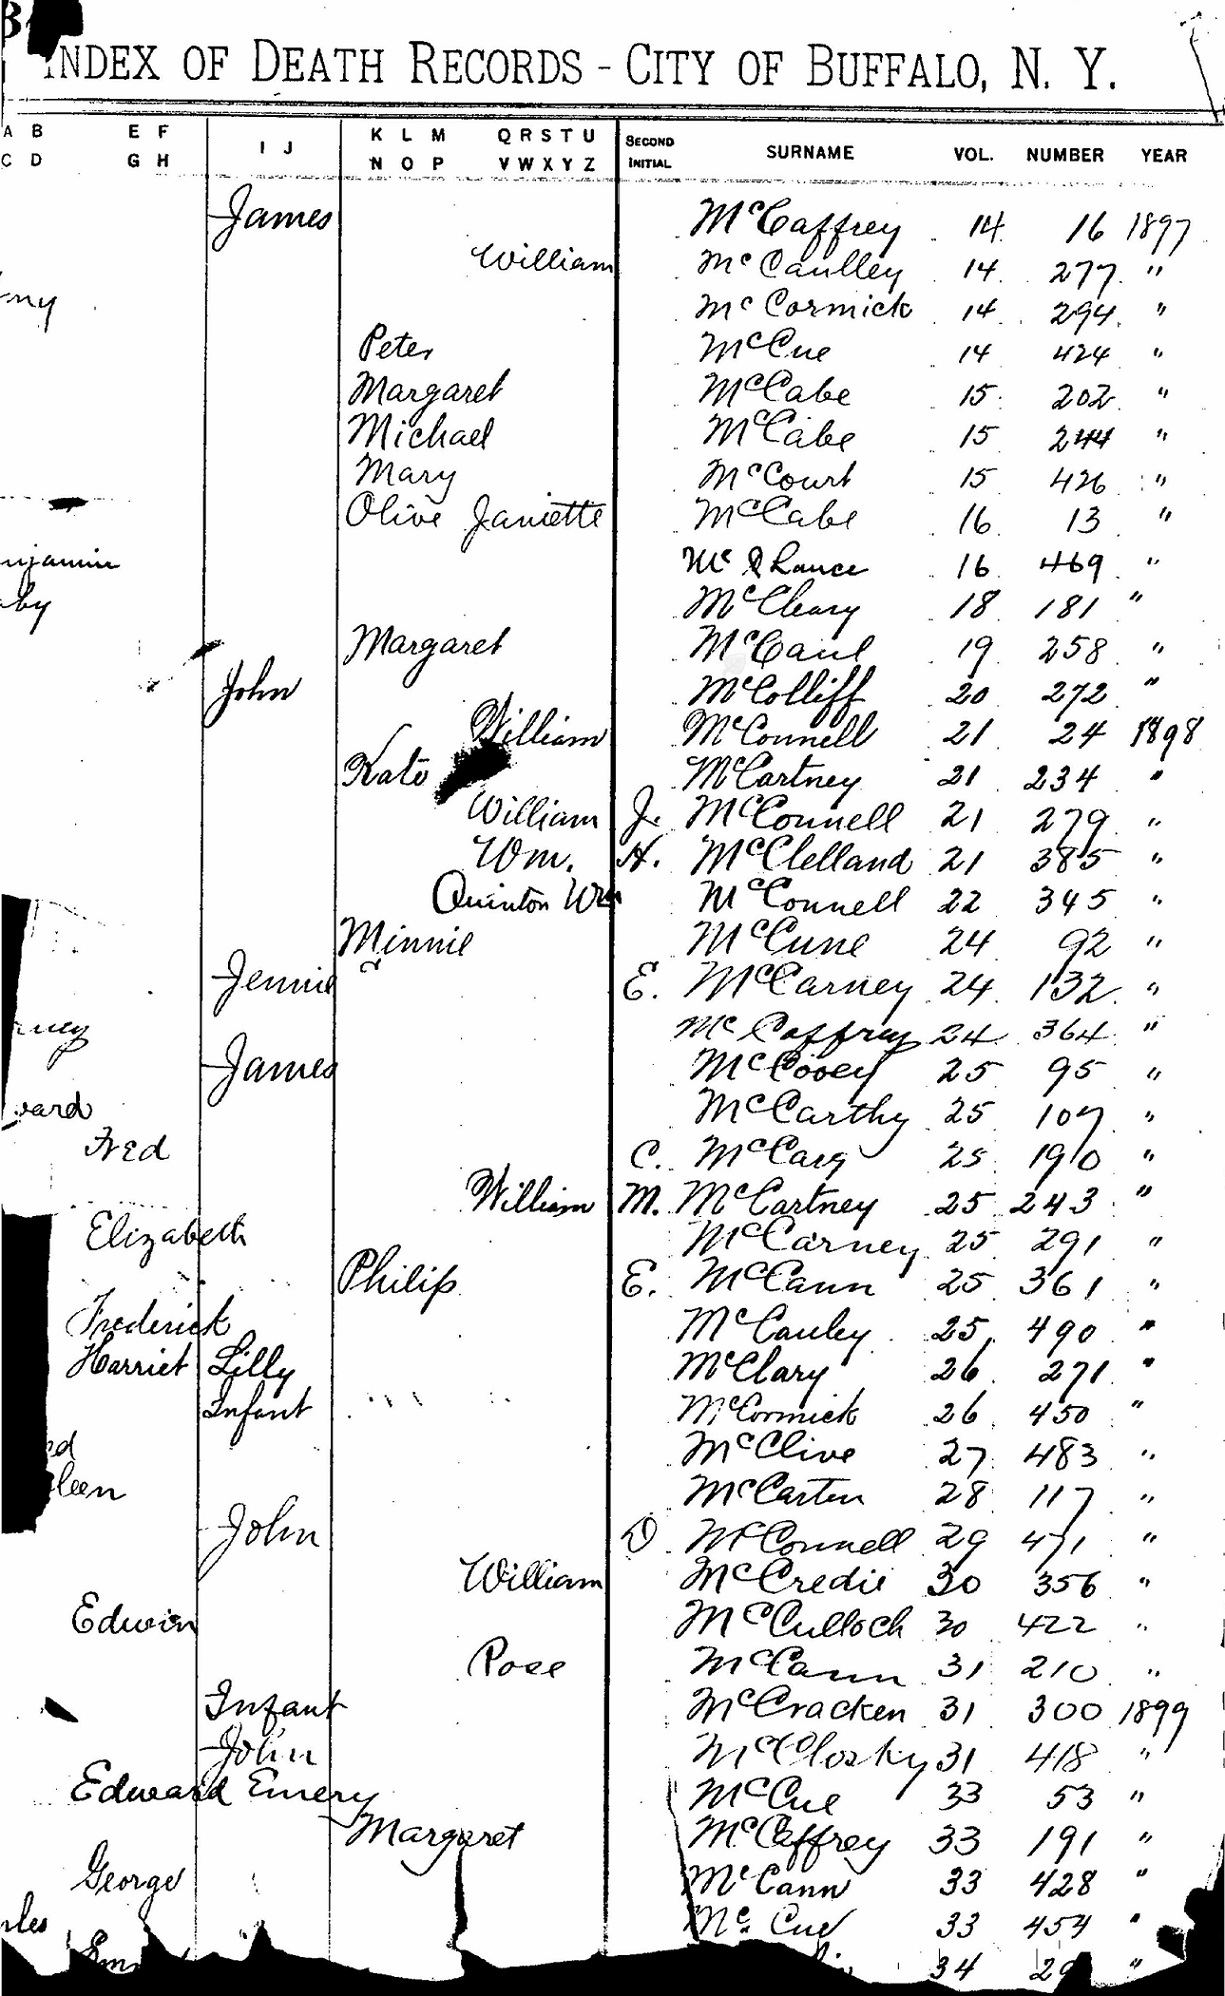 INDEX OF DEATH RECORDS - CITY OF BUFFALO, N. Y.
A B E F I J K L M Q R S T U SECOND SURNAME VOL. NUMBER YEAR
C D G H N O P V W X Y Z INITIAL
James McCaffrey 14 16 1897
William McCaulley 14 277 "
McCormick 14 294 "
Peter McCue 14 424 "
Margaret McCabe 15 202 "
Michael McCabe 15 244 "
Mary McCourt 15 426 "
Olive Janiette McCabe 16 13 "
njamin Mc 16 469 "
aby McCleary 18 181 "
Margaret McCaul 19 258 "
John McColliff 20 272 "
William McConnell 21 24 1898
Kate McCartney 21 234 "
William J. McConnell 21 279 "
Wm. H. McClelland 21 385 "
Quinton Wm McConnell 22 345 "
Minnie McCune 24 92 "
Jennie E. McCarney 24 132 "
McCaffrey 24 364 "
James McCooey 25 95 "
ward McCarthy 25 107 "
Fred C. McCarg 25 190 "
William M. McCartney 25 243 "
Elizabeth McCarney 25 291 "
Philip E. McCann 25 361 "
Frederick McCauley 25 490 "
Harriet Lilly McClary 26 271 "
Infant McCormick 26 450 "
McClive 27 483 "
leen McCarten 28 117 "
John D McConnell 29 471 "
William McCredie 30 356 "
Edwin McCulloch 30 422 "
Rose McCann 31 210 "
Infant McCracken 31 300 1899
John McClosky 31 418 "
Edward Emery McCue 33 53 "
Margaret McCaffrey 33 191 "
George McCann 33 428 "
rles McCue 33 454 "
34 "